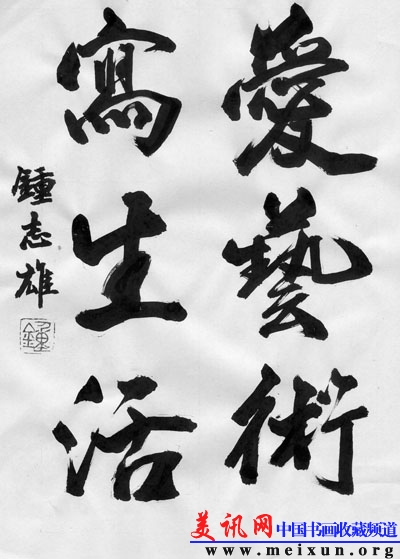 愛藝術
寫生活
鍾志雄
鍾
美讯网 中国书画收藏频道
www.meixun.org